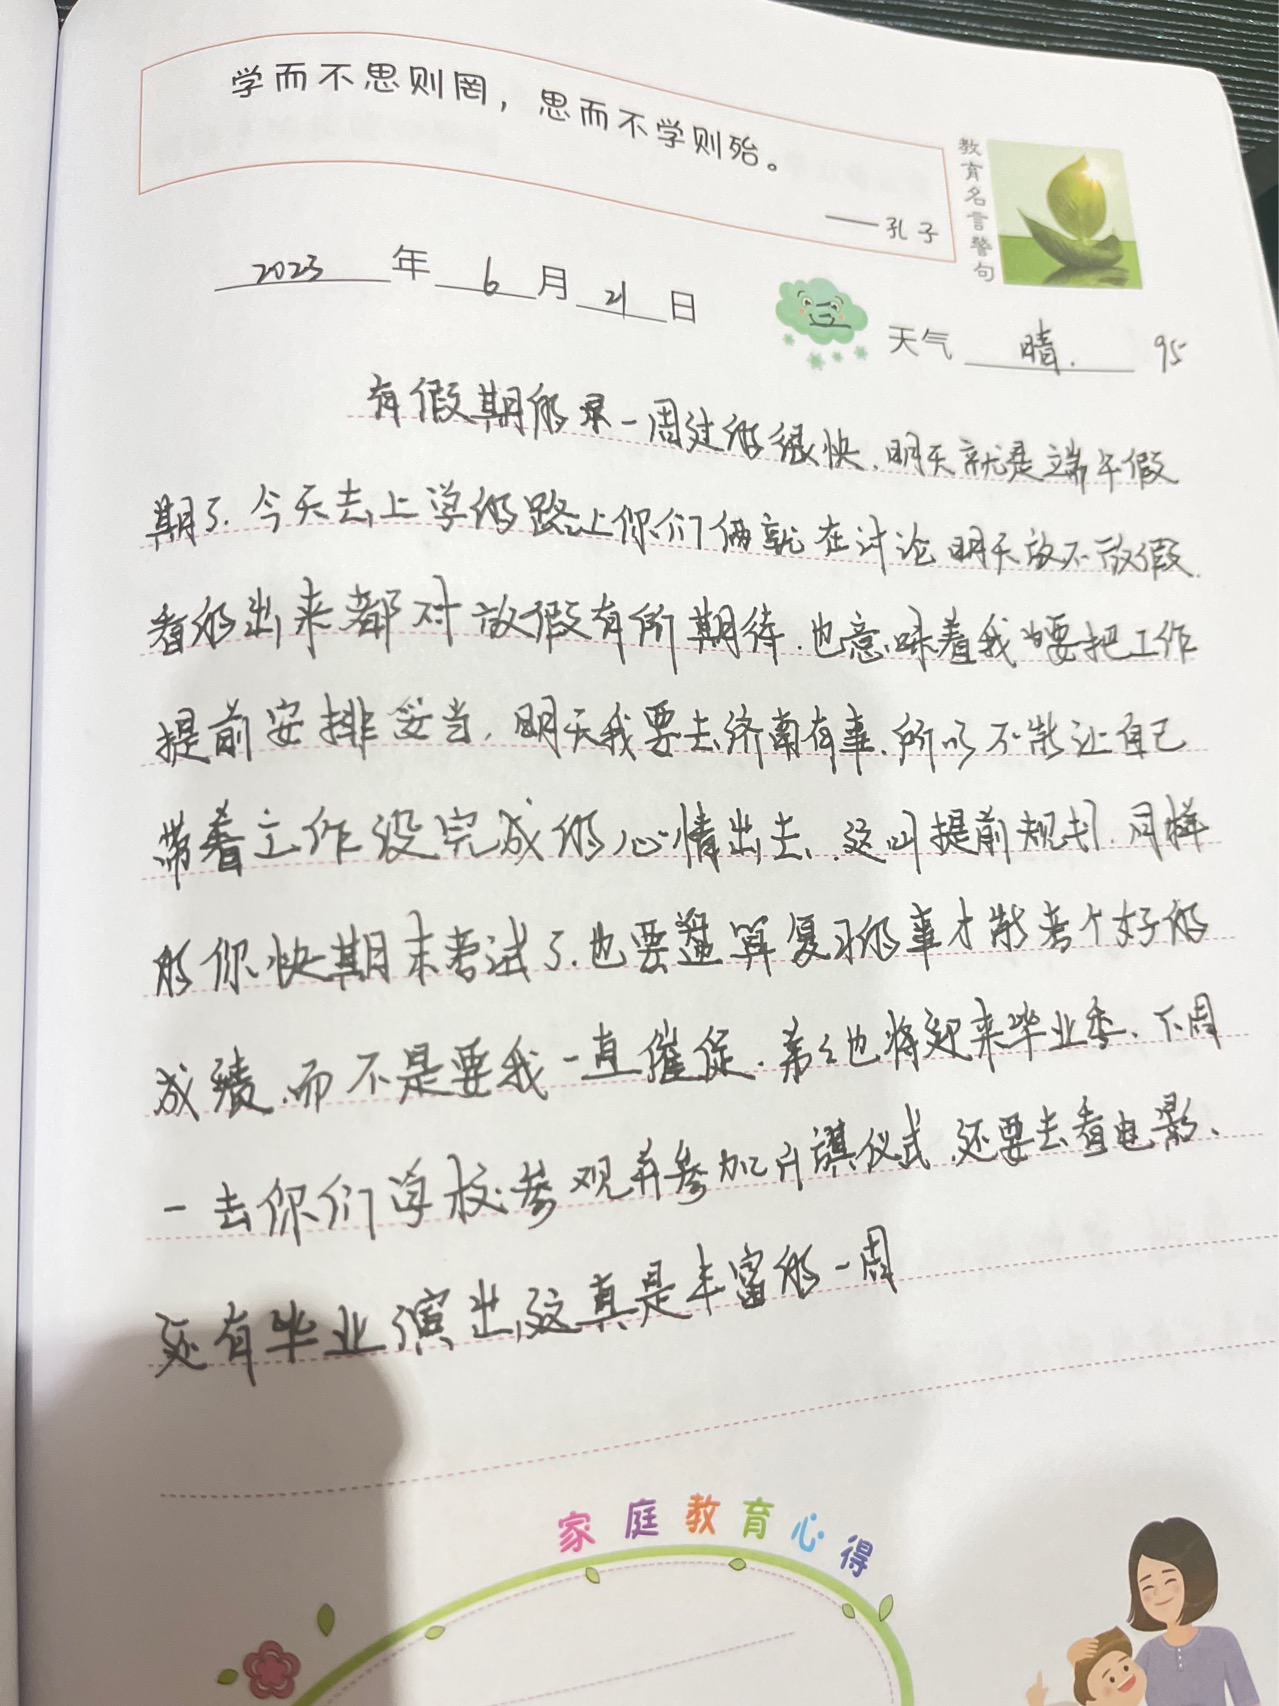 学而不思则罔，思而不学则殆。
——孔子
教育名言警句
2023年6月21日
天气 晴. 95
有假期的一周过得很快.明天就是端午假
期了.今天去上学的路上你们俩就在讨论明天放不放假.
看的出来都对放假有所期待.也意味着我要把工作
提前安排妥当.明天我要去济南有事.所以不能让自己
带着工作没完成的心情出去.这叫提前规划.同样
的你快期末考试了.也要盘算复习的事才能考个好的
成绩.而不是要我一直催促.弟弟也将迎来毕业季.下周
一去你们学校参观并参加升旗仪式.还要去看电影、
还有毕业演出,这真是丰富的一周
家庭教育心得